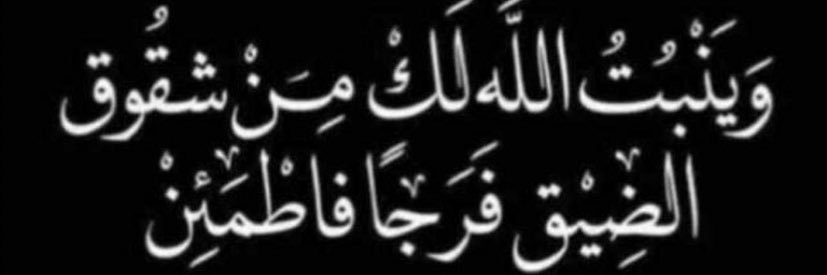 وَيَنْبُتُ اللَّه لَكْ مِنَ شُقُوق
الضِيْق فَرَجًا فاطْمَئِنْ